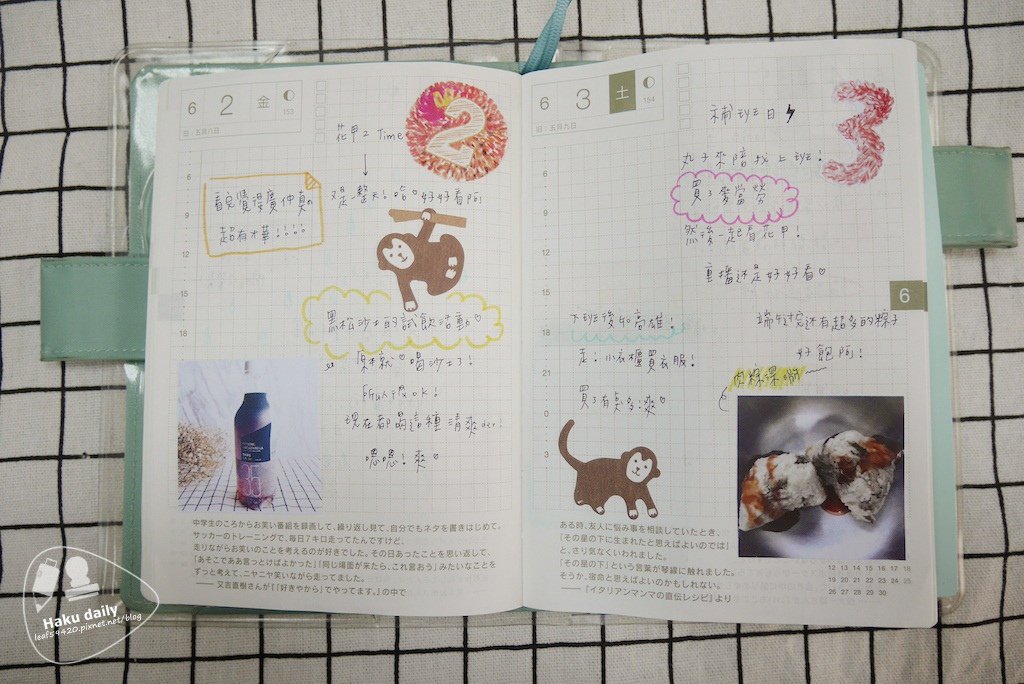 6 2 金
153
旧:五月八日
花甲 2 Time
2
6
9
12
15
18
看完覺得廣仲真的
超有才華!!!!
又是整天!哈♡好好看阿
黑松沙士的試飲活動♡
原本就♡喝沙士了!
所以還ok!
現在都喝這種清爽der!
嗯嗯!爽♡
中学生のころからお笑い番組を録画して、繰り返し見て、自分でもネタを書きはじめて。
サッカーのトレーニングで、毎日7キロ走ってたんですけど、
走りながらお笑いのことを考えるのが好きでした。その日あったことを思い返して、
「あそこでああ言っとけばよかった」「同じ場面が来たら、これ言おう」みたいなことを
ずっと考えて、ニヤニヤ笑いながら走ってました。
——又吉直樹さんが『「好きやから」でやってます。』の中で
6 3 土
154
旧:五月九日
補班日
3
6
9
12
15
18
21
0
3
丸子來陪我上班!
買了麥當勞
然後一起看花甲!
重播還是好好看♡
下班後 高雄!
走!小衣櫃買衣服!
買了有夠多!爽♡
6
端午過完還有超多的粽子
好飽阿!
肉粿
ある時、友人に悩み事を相談していたとき、
「その星の下に生まれたと思えばよいのでは」
と、さり気なくいわれました。
「その星の下」という言葉が琴線に触れました。
そうか、宿命と思えばよいのかもしれない。
——『イタリアンマンマの直伝レシピ』より
12 13 14 15 16 17 18
19 20 21 22 23 24 25
26 27 28 29 30
Haku daily
leaf59420.pixnet.net/blog